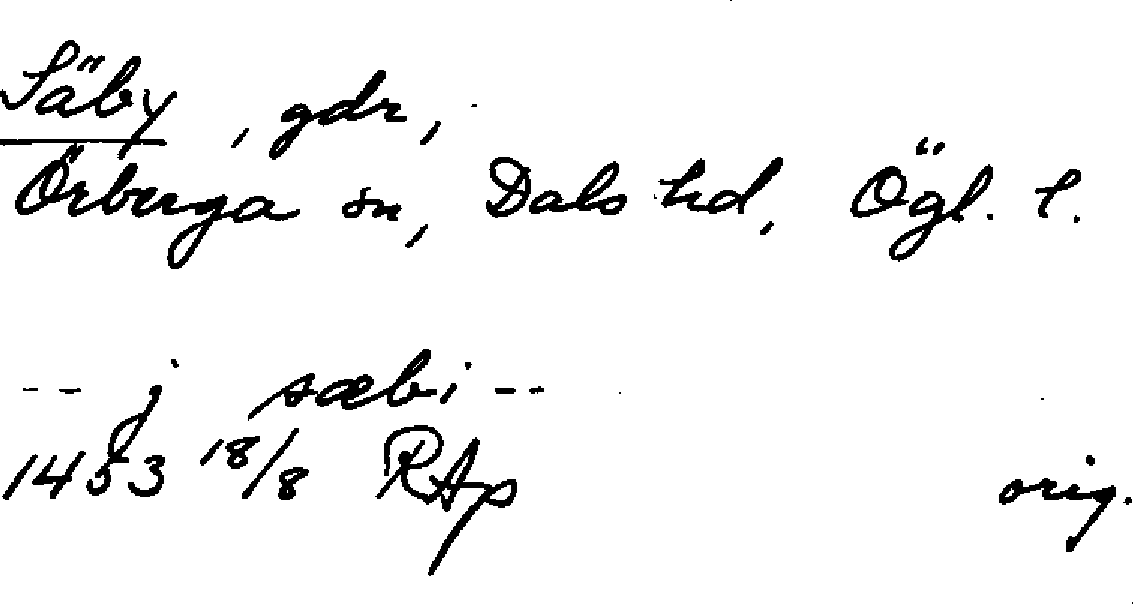 Säby, gdr,
Örberga sn, Dals hd, Ögl. l.
-- j sæbi --
1453 18/8 RAp orig.